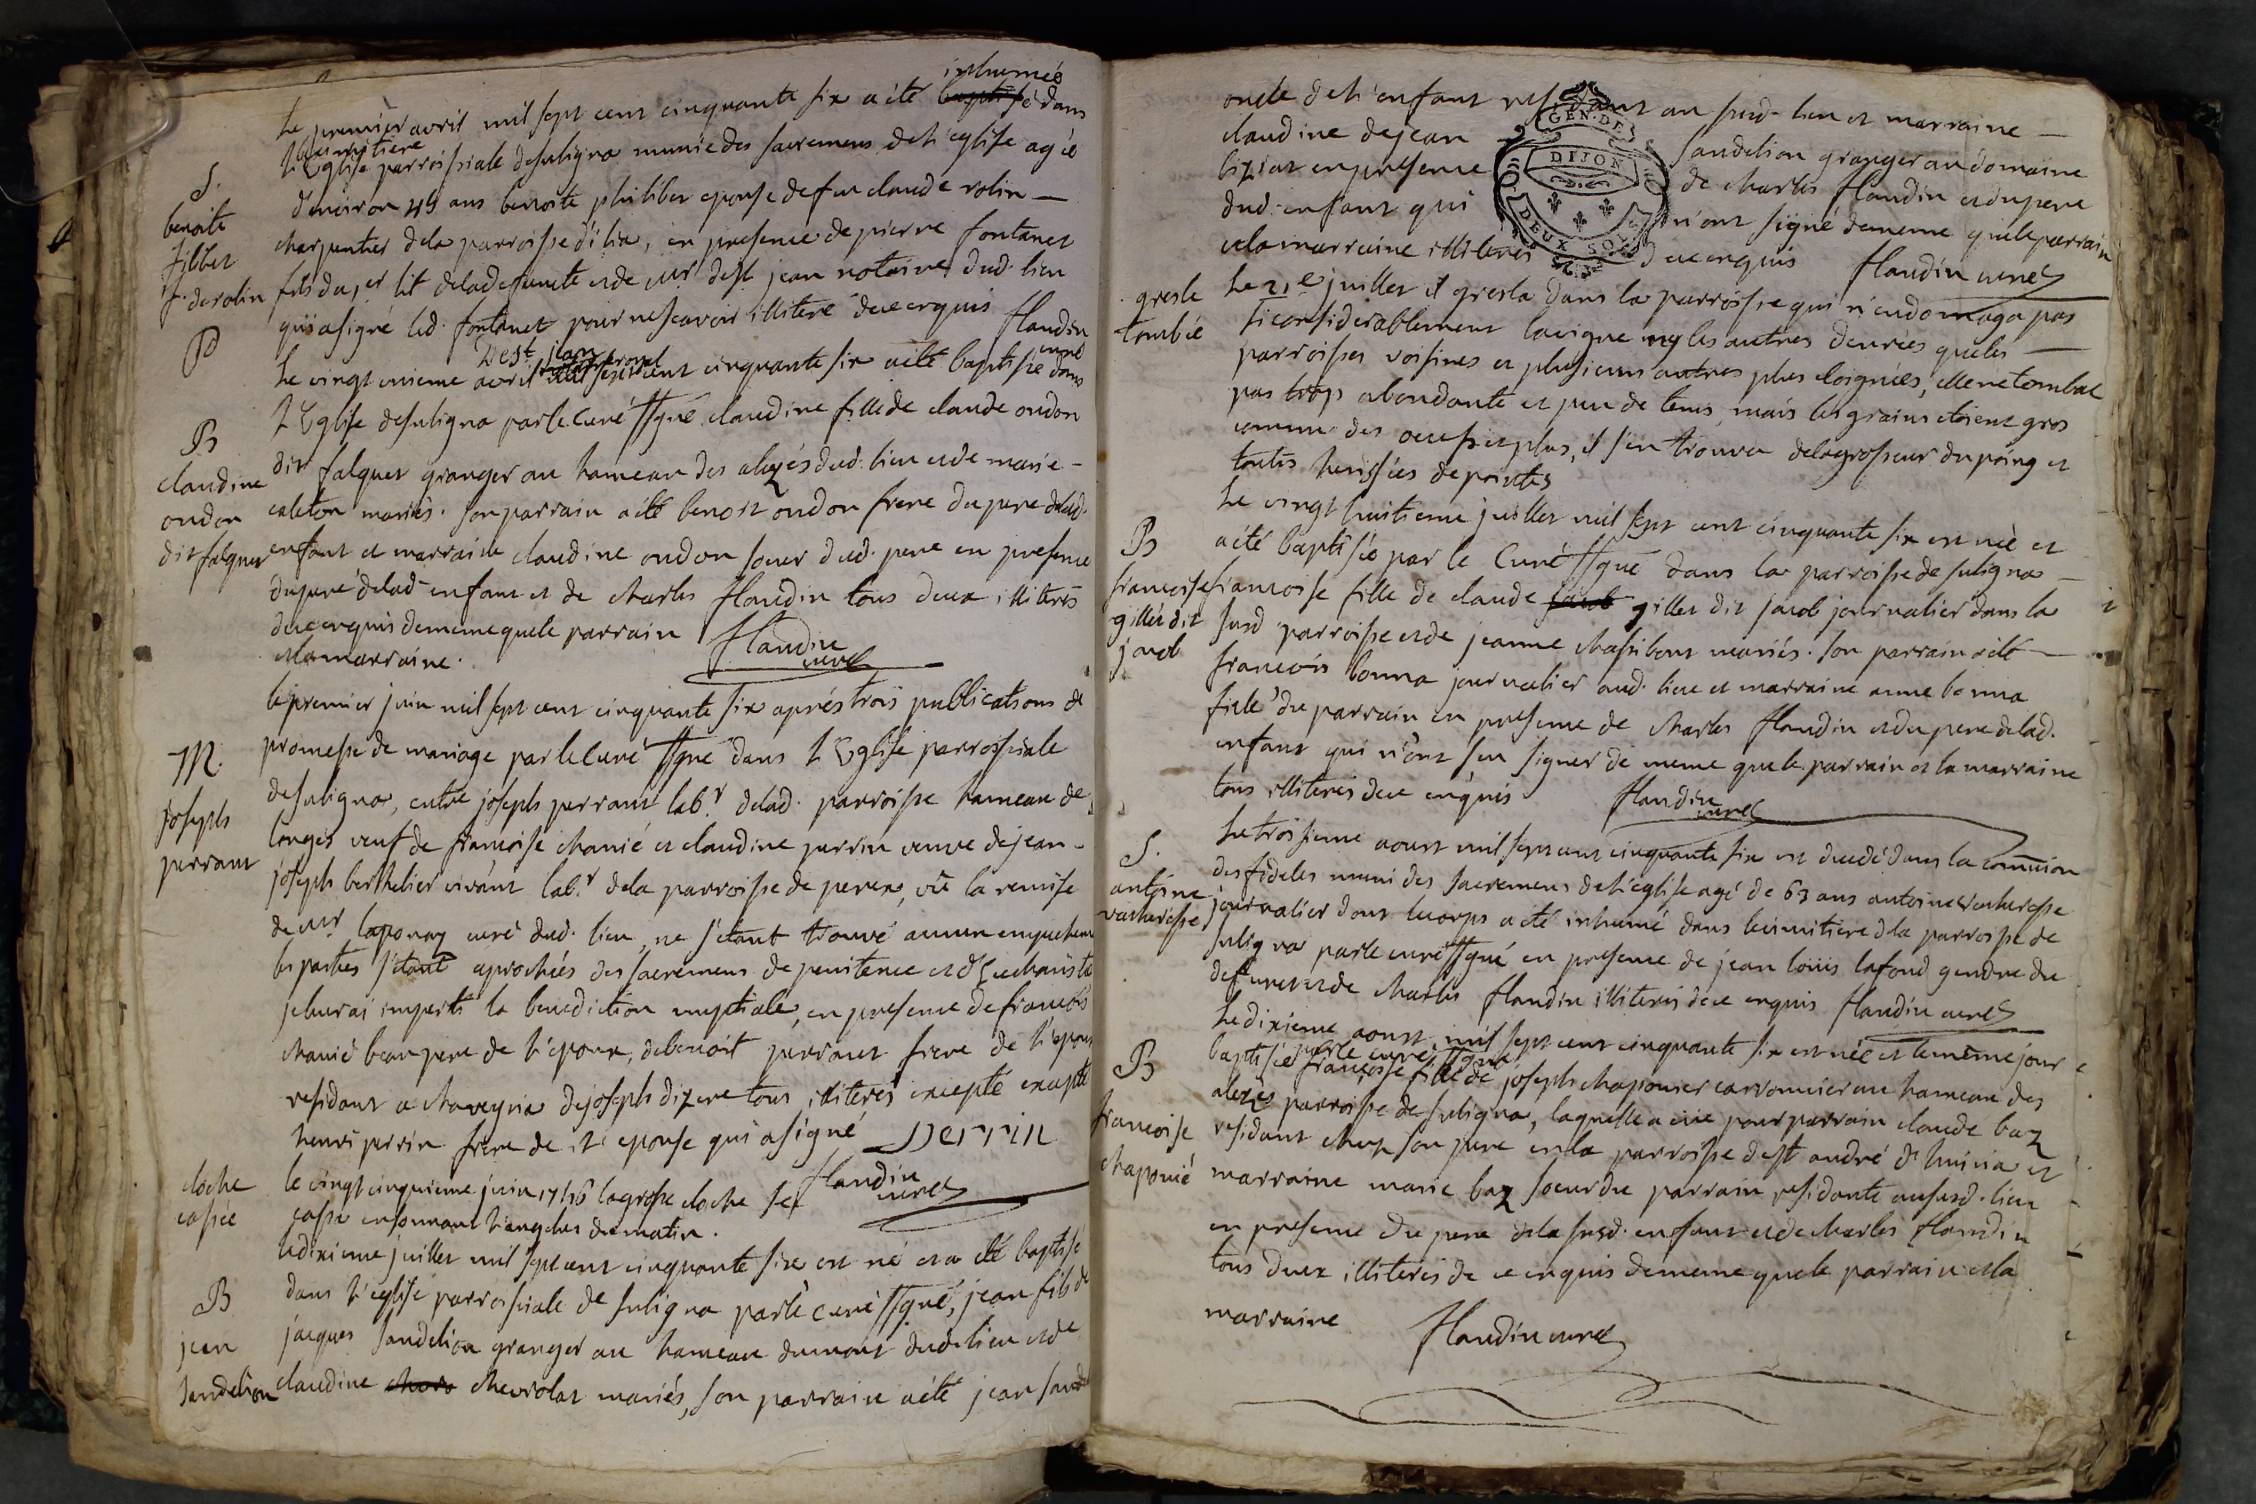 inhumée
Le premier avril mil sept cent cinquante six a été baptisé dans
le cimitiere
L'Eglise parroissiale de suligna munie des sacremens de l'eglise agée
S.
d'environ 45 ans benoite philiber epouse de feu claude rolin —
benoite
filiber
f. de rolin
charpentier de la parroisse d'ilia, en presence de pierre fontanet
fils du 1er lit de la defuncte et de Mr dest jean notaire dud. lieu
qui a signé led. fontanet pour ne scavoir illitere de ce enquis flandin curé
P
Dest jean
Le vingt unieme avril mil sept cent cinquante six a été baptisée dans
L'Eglise de suligna par le Curé ssgné claudine fille de claude oudon
B
claudine
oudon
dit falquet
dit falquet granger au hameau des alezés dud. lieu et de marie -
caleton mariés. son parrain a été benoit oudon frere du pere de lad.
enfant et marraine claudine oudon soeur dud. pere en presence
du pere de lad enfant et de charles flandin tous deux illiterés
de ce enquis de meme que le parrain
et la marraine.
flandin
curé
le premier juin mil sept cent cinquante six aprés trois publications de
promesse de mariage par le Curé ssgné dans L'Eglise parroissiale
M.
joseph
perraut
de suligna, entre joseph perraut lab.r de lad. parroisse hameau de
longes veuf de francoise chanié et claudine perrin veuve de jean -
joseph berthelier vivant lab.r de la parroisse de perex, vû la remise
de Mr laponay curé dud. lieu, ne s'etant trouvé aucun empechem
les parties s'etant aprochées des sacremens de penitence et d'Eucharistie
je leurai imparti la benediction nuptiale, en presence de francois
chanié beau pere de l'epoux, de benoit perraut frere de l'epoux
residant a chaveyria de joseph dizere tous illiterés excepté excepté
henri perrin frere de l'epouse qui a signé perrin
flandin
curé
cloche
cassée
le vingt cinquieme juin 1756 la grosse cloche s'est
cassée en sonnant l'angelus du matin.
Le dixieme juillet mil sept cent cinquante six est né et a été baptisé
B
jean
sandelion
dans l'eglise parroissiale de suligna par le curé ssgné, jean fils de
jacques sandelion granger au hameau du mont dud lieu et de
claudine chevrolat mariés, son parrain a été jean sande
oncle de l'enfant residant au susd. lieu et marraine —
claudine dejean sandelion granger au domaine
biziat en presence de charles flandin et du pere
dud. enfant qui n'ont signé de meme que le parrain
et la marraine illiterés de ce enquis flandin curé
GEN. DE
DIJON
DEUX SOLS
gresle
tombée
Le 21e juillet il gresla dans la parroisse qui n'endomaga pas
si considerablement la vigne ny les autres denrées que les —
parroisses voisines et plusieurs autres plus eloignées, elle ne tomba
pas trop abondante et peu de tems, mais les grains etoient gros
comme des oeufs et plus, il s'en trouva de la grosseur du poing et
toutes herissées de pointes
Le vingt huitieme juillet mil sept cent cinquante six est née et
B
francoise
gillet dit
jacob
a été baptisée par le Curé ssgné dans la parroisse de suligna —
francoise fille de claude jacob gillet dit jacob journalier dans la
susd parroisse et de jeanne chassibout mariés. son parrain a été —
francois bonna journalier aud. lieu et marraine anne bonna
fille du parrain en presence de charles flandin et du pere de lad.
enfant qui n'ont sçu signer de meme que le parrain et la marraine
tous illiterés de ce enquis flandin
curé
Le troisieme aoust mil sept cent cinquante six est decedé dans la comunion
S.
antoine
vacheresse
des fideles muni des sacremens de l'eglise agé de 63 ans antoine vacheresse
journalier dont le corps a été inhumé dans le cimitiere de la parroisse de
suligna par le curé ssgné en presence de jean loüis lafond gendre du
defunct et de charles flandin illiterés de ce enquis flandin curé
Le dixieme aoust mil sept cent cinquante six est née et le meme jour
par le curé ssgné
B
francoise
chaponié
baptisée francoise fille de joseph chaponier charronnier au hameau des
alezés parroisse de suligna, laquelle a eue pour parrain claude baz
residant chez son pere en la parroisse de st andré d'huiria et
marraine marie baz soeur du parrain residante au susd. lieu
en presence du pere de la susd. enfant et de charles flandin
tous deux illiterés de ce enquis de meme que le parrain et la
marraine flandin curé